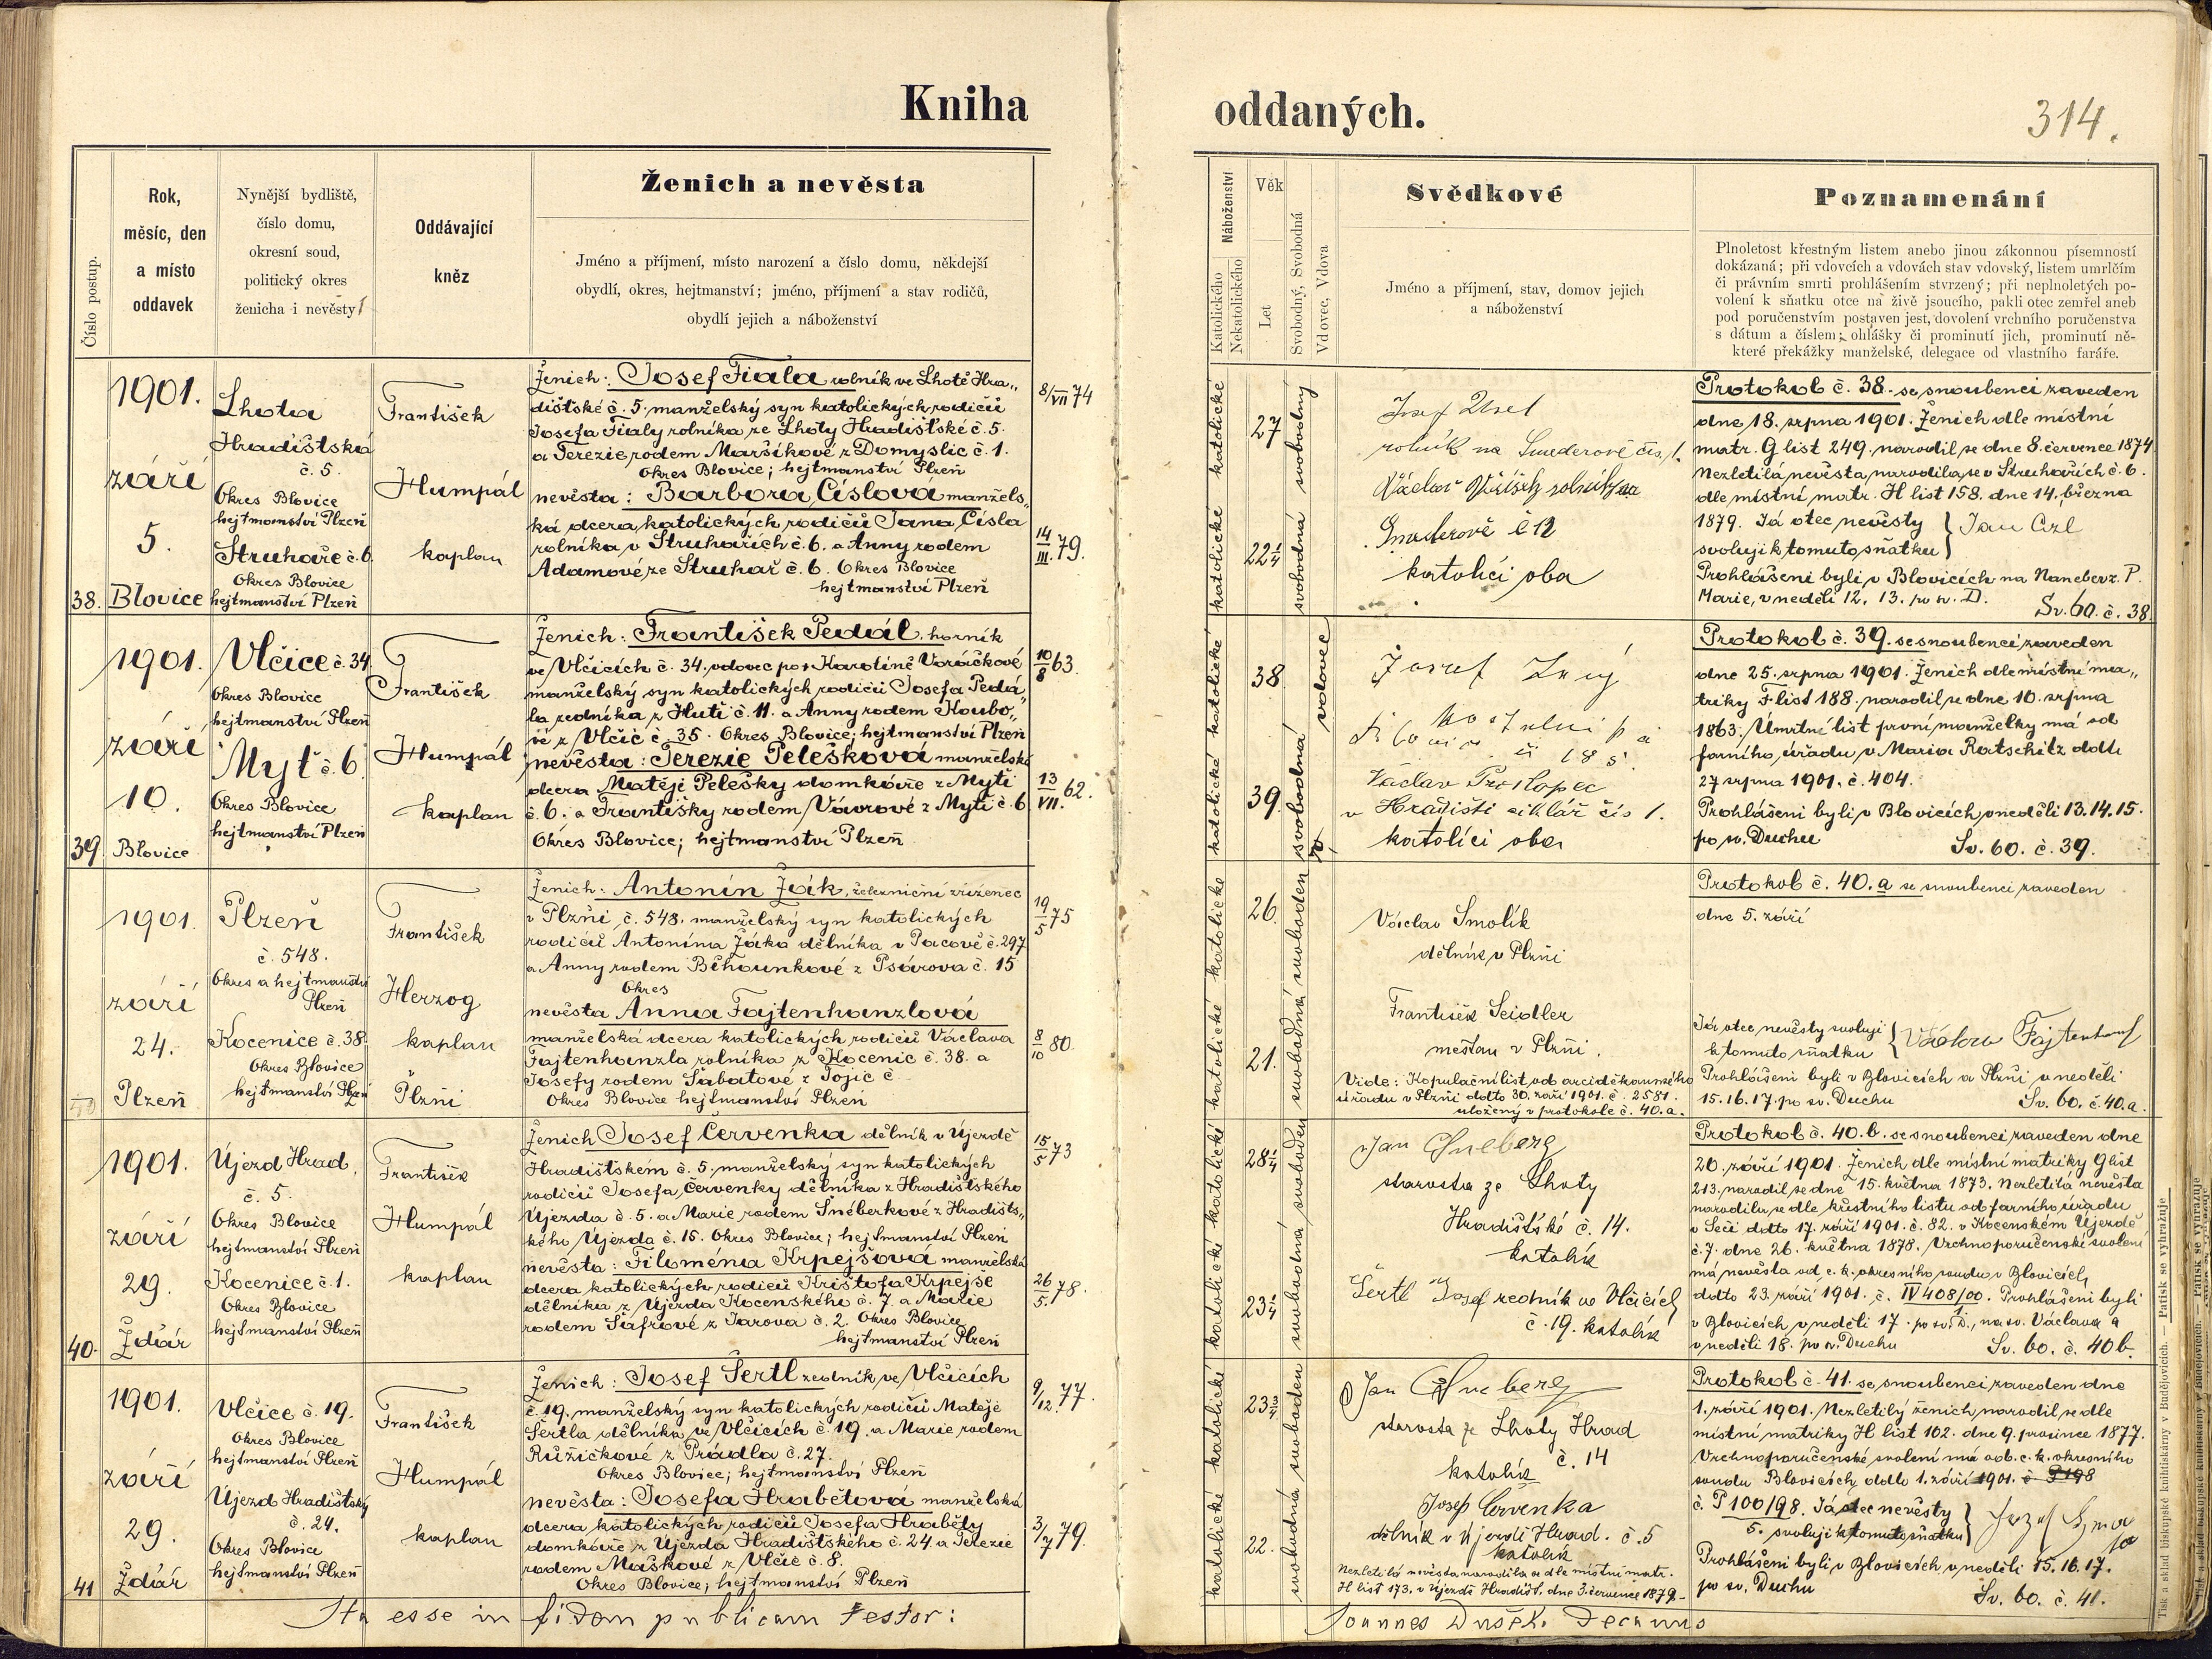 Kniha
oddaných.
314.
Číslo postup.
Rok,
měsíc, den
a místo
oddavek
Nynější bydliště,
číslo domu,
okresní soud,
politický okres
ženicha i nevěsty
Oddávající
kněz
Ženich a nevěsta
Jméno a příjmení, místo narození a číslo domu, někdejší
obydlí, okres, hejtmanství; jméno, příjmení a stav rodičů,
obydlí jejich a náboženství
Náboženství
Katolického
Nekatolického
Věk
Let
Svobodný, Svobodná
Vdovec, Vdova
Svědkové
Jméno a příjmení, stav, domov jejich
a náboženství
Poznamenání
Plnoletost křestným listem anebo jinou zákonnou písemností
dokázaná; při vdovcích a vdovách stav vdovský, listem umrlčím
či právním smrti prohlášením stvrzený; při neplnoletých po-
volení k sňatku otce na živě jsoucího, pakli otec zemřel aneb
pod poručenstvím postaven jest, dovolení vrchního poručenstva
s dátum a číslem; ohlášky či prominutí jich, prominutí ně-
které překážky manželské, delegace od vlastního faráře.
38.
1901.
září
5.
Blovice
Lhota
Hradištská
č. 5.
Okres Blovice
hejtmanství Plzeň
Struhaře č. 6.
Okres Blovice
hejtmanství Plzeň
František
Humpál
kaplan
Ženich: Josef Fiala rolník ve Lhotě Hra„
dištské č. 5. manželský syn katolických rodičů
Josefa Fialy rolníka ze Lhoty Hradištské č. 5.
a Terezie rodem Maršíkové z Domyslic č. 1.
Okres Blovice; hejtmanství Plzeň
nevěsta: Barbora Císlová manžels„
ká dcera katolických rodičů Jana Císla
rolníka v Struhařích č. 6. a Anny rodem
Adamové ze Struhař č. 6. Okres Blovice
hejtmanství Plzeň
8/VII 74
14/III. 79.
katolické
katolické
27
22¼
svobodný
svobodná
Josef
rolník na Smederově čís. 1.
Václav rolník na
Smederově č 12
katolíci oba
Protokol č. 38. se snoubenci zaveden
dne 18. srpna 1901. Ženich dle místní
matr. G list 249. narodil se dne 8. července 1874
Nezletilá nevěsta, narodila se v Struhařích č. 6.
dle místní matr. H list 158. dne 14. března
1879. Já otec nevěsty } Jan
svoluji k tomuto sňatku
Prohlášeni byli v Blovicích na Naneber. P.
Marie, v neděli 12. 13. po sv. D.
Sv. 60. č. 38
39
1901.
září
10.
Blovice
Vlčice č. 34
Okres Blovice
hejtmanství Plzeň
Myť č. 6
Okres Blovice
hejtmanství Plzeň
František
Humpál
kaplan
Ženich: František Pedál, horník
ve Vlčicích č. 34. vdovec po † Karolíně Voráčkové
manželský syn katolických rodičů Josefa Pedá„
la zedníka z Hutí č. 11. a Anny rodem Koubo„
vé z Vlčic č. 35. Okres Blovice; hejtmanství Plzeň
nevěsta: Terezie Pelešková manželská
dcera Matěje Pelešky domkáře z Mytí
č. 6. a Františky rodem Vávrové z Mytí č. 6
Okres Blovice; hejtmanství Plzeň
10/8 63
13/VII. 62.
katolické
katolické
38
39.
vdovec
svobodná
Josef
Václav Prokopec
v Hradišti čís 1.
katolíci oba
Protokol č. 39. se snoubenci zaveden
dne 25. srpna 1901. Ženich dle místní ma„
triky F list 188. narodil se dne 10. srpna
1863. Úmrtní list první manželky má od
farního úřadu v Maria Ratschitz ddto
27 srpna 1901. č. 404.
Prohlášeni byli v Blovicích v neděli 13. 14. 15.
po sv. Duchu
Sv. 60. č. 39.
1901.
září
24.
Plzeň
Plzeň
č. 548.
Okres a hejtmanství
Plzeň
Kocenice č. 38
Okres Blovice
hejtmanství Plzeň
František
Herzog
kaplan
v Plzni
Ženich: Antonín Žák, železniční zřízenec
v Plzni č. 548. manželský syn katolických
rodičů Antonína Žáka dělníka v Pacově č. 297
a Anny rodem Běhounkové z Psárova č. 15
Okres
nevěsta Anna Fajtenhanzlová
manželská dcera katolických rodičů Václava
Fajtenhanzla rolníka z Kocenic č. 38. a
Josefy rodem Šabatové z Tojic č
Okres Blovice hejtmanství Plzeň
19/5 75
8/10 80.
katolické
katolické
26.
21.
svoboden
svobodná
Václav Smolík
dělník v Plzni
František Seidler
mešťan v Plzni.
Vide: Kopulační list od arciděkanského
úřadu v Plzni ddto 30. září 1901. č. 2581.
uložený v protokole č. 40. a.
Protokol č. 40. a se snoubenci zaveden
dne 5. září
Já otec nevěsty svoluji
k tomuto sňatku { Václav
Prohlášeni byli v Blovicích a Plzni v neděli
15. 16. 17. po sv. Duchu
Sv. 60. č. 40. a.
40.
1901.
září
29.
Ždár
Újezd Hrad.
č. 5.
Okres Blovice
hejtmanství Plzeň
Kocenice č. 1.
Okres Blovice
hejtmanství Plzeň
František
Humpál
kaplan
Ženich Josef Červenka dělník v Újezdě
Hradištském č. 5. manželský syn katolických
rodičů Josefa Červenky dělníka z Hradištského
Újezda č. 5. a Marie rodem Šneberkové z Hradišts„
kého Újezda č. 15. Okres Blovice; hejtmanství Plzeň
nevěsta: Filoména Krpejšová manželská
dcera katolických rodičů Krištofa Krpejše
dělníka z Újezda Kocenského č. 7. a Marie
rodem Šafrové z Jarova č. 2. Okres Blovice
hejtmanství Plzeň
15/5 73
26/5. 78.
katolické
katolické
28¼
23¼
svoboden
svobodná
Jan Šneberg
starosta ze Lhoty
Hradištské č. 14.
katolík
Šertl Josef zedník ve Vlčicích
č. 19. katolík
Protokol č. 40. b. se snoubenci zaveden dne
20. září 1901. Ženich dle místní matriky G list
213. narodil se dne 15. května 1873. Nezletilá nevěsta
narodila se dle křestního listu od farního úřadu
v Seči ddto 17. září 1901. č. 82. v Kocenském Újezdě
č. 7. dne 26. května 1878. Vrchnoporučenské svolení
má nevěsta od c. k. okresního soudu v Blovicích
ddto 23. září 1901. č. IV 408/00. Prohlášeni byli
v Blovicích v neděli 17. po sv. D., na sv. Václava a
v neděli 18. po sv. Duchu
Sv. 60. č. 40 b.
41
1901.
září
29.
Ždár
Vlčice č. 19.
Okres Blovice
hejtmanství Plzeň
Újezd Hradištský
č. 24.
Okres Blovice
hejtmanství Plzeň
František
Humpál
kaplan
Ženich: Josef Šertl zedník ve Vlčicích
č. 19. manželský syn katolických rodičů Matěje
Šertla dělníka ve Vlčicích č. 19. a Marie rodem
Růžičkové z Prádla č. 27.
Okres Blovice; hejtmanství Plzeň
nevěsta: Josefa Hrabětová manželská
dcera katolických rodičů Josefa Hraběty
domkáře z Újezda Hradištského č. 24 a Terezie
rodem Maškové z Vlčic č. 8.
Okres Blovice; hejtmanství Plzeň
9/12. 77.
3/7 79.
katolické
katolické
23¾
22.
svoboden
svobodná
Jan Šneberg
starosta ze Lhoty Hrad
č. 14
katolík
Josef Červenka
dělník v Újezdě Hrad. č. 5
katolík
Nezletilá nevěsta narodila se dle místní matr.
H list 173. v Újezdě Hradišt. dne 3. července 1879.
Protokol č. 41. se snoubenci zaveden dne
1. září 1901. Nezletilý ženich narodil se dle
místní matriky H list 102. dne 9. prosince 1877.
Vrchnoporučenské svolení má od c. k. okresního
soudu Blovicích ddto 1. září 1901. č P 198
č. P 100/98. Já otec nevěsty
5. svoluji k tomuto sňatku }
Prohlášeni byli v Blovicích v neděli 15. 16. 17.
po sv. Duchu
Sv. 60. č. 41.
Ita esse in fidem publicam testor:
Joannes Dušek. Decanus
Tisk a sklad biskupské knihtiskárny v Budějovicích. — Patisk se vyhražuje